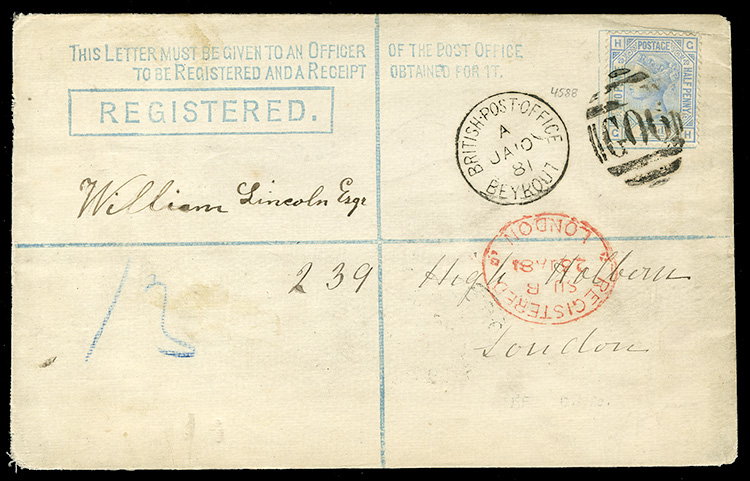 THIS LETTER MUST BE GIVEN TO AN OFFICER OF THE POST OFFICE
TO BE REGISTERED AND A RECEIPT OBTAINED FOR IT.
REGISTERED.
H POSTAGE G
HALFPENNY
G H
4588
BRITISH·POST·OFFICE
A
JA 10
81
BEYROUT
G06
William Lincoln Esqr
239 High Holborn
London
REGISTERED
LONDON